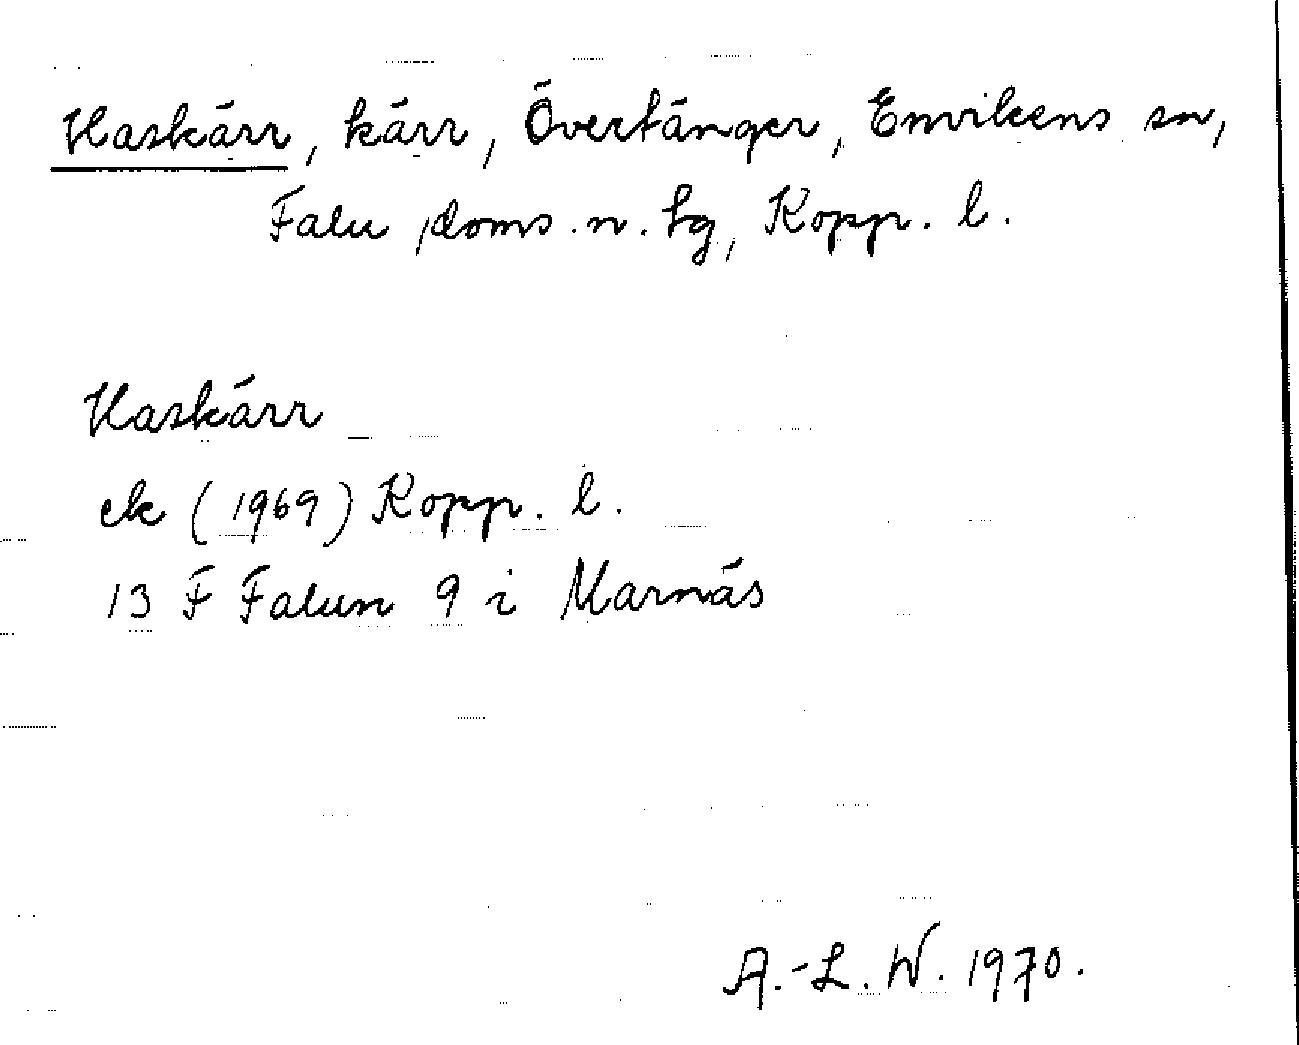 Haskärr, kärr, Övertänger, Envikens sn,
Falu doms. n. tg, Kopp. l.
Haskärr
ek (1969) Kopp. l.
13 F Falun 9 i Marnäs
A.-L. W. 1970.